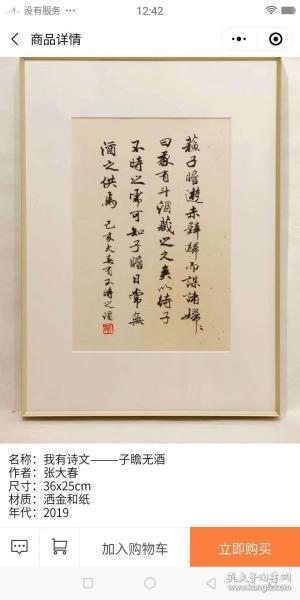 没有服务
12:42
商品详情
蘇子瞻游赤壁歸而謀諸婦〻
曰我有斗酒藏之久矣以待子
不時之需可知子瞻日常無
酒之供焉 己亥大春有不時之酒
名称：我有诗文——子瞻无酒
作者：张大春
尺寸：36x25cm
材质：洒金和纸
年代：2019
加入购物车
立即购买
孔夫子旧书网
kongfz.com